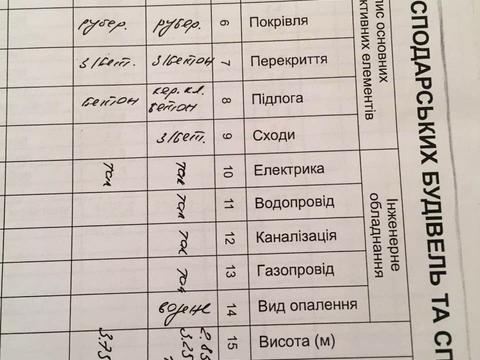 СПОДАРСЬКИХ БУДІВЕЛЬ ТА СП
пис основних
ктивних елементів
Інженерне
обладнання
рубер. рубер. 6 Покрівля
З/бет. З/бетон 7 Перекриття
бетон кер. кл. бетон 8 Підлога
З/бет. 9 Сходи
так так 10 Електрика
так 11 Водопровід
так 12 Каналізація
так 13 Газопровід
14 Вид опалення
3.75 3.25 2.85 15 Висота (м)